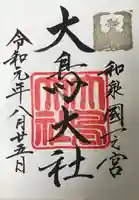 和泉國一之宮
大鳥大社
令和元年八月廿五日